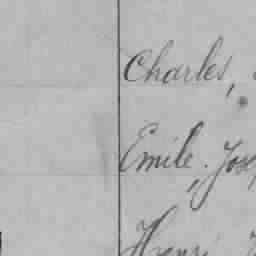 Charles,
Emile. Jos
Henri